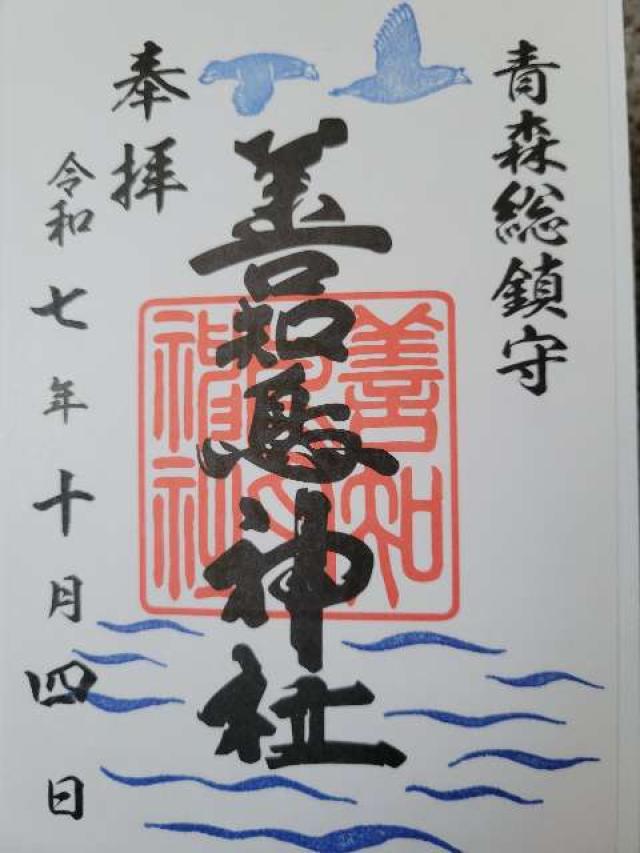 青森総鎮守
善知鳥神社
奉拝
令和七年十月四日
善知
神社